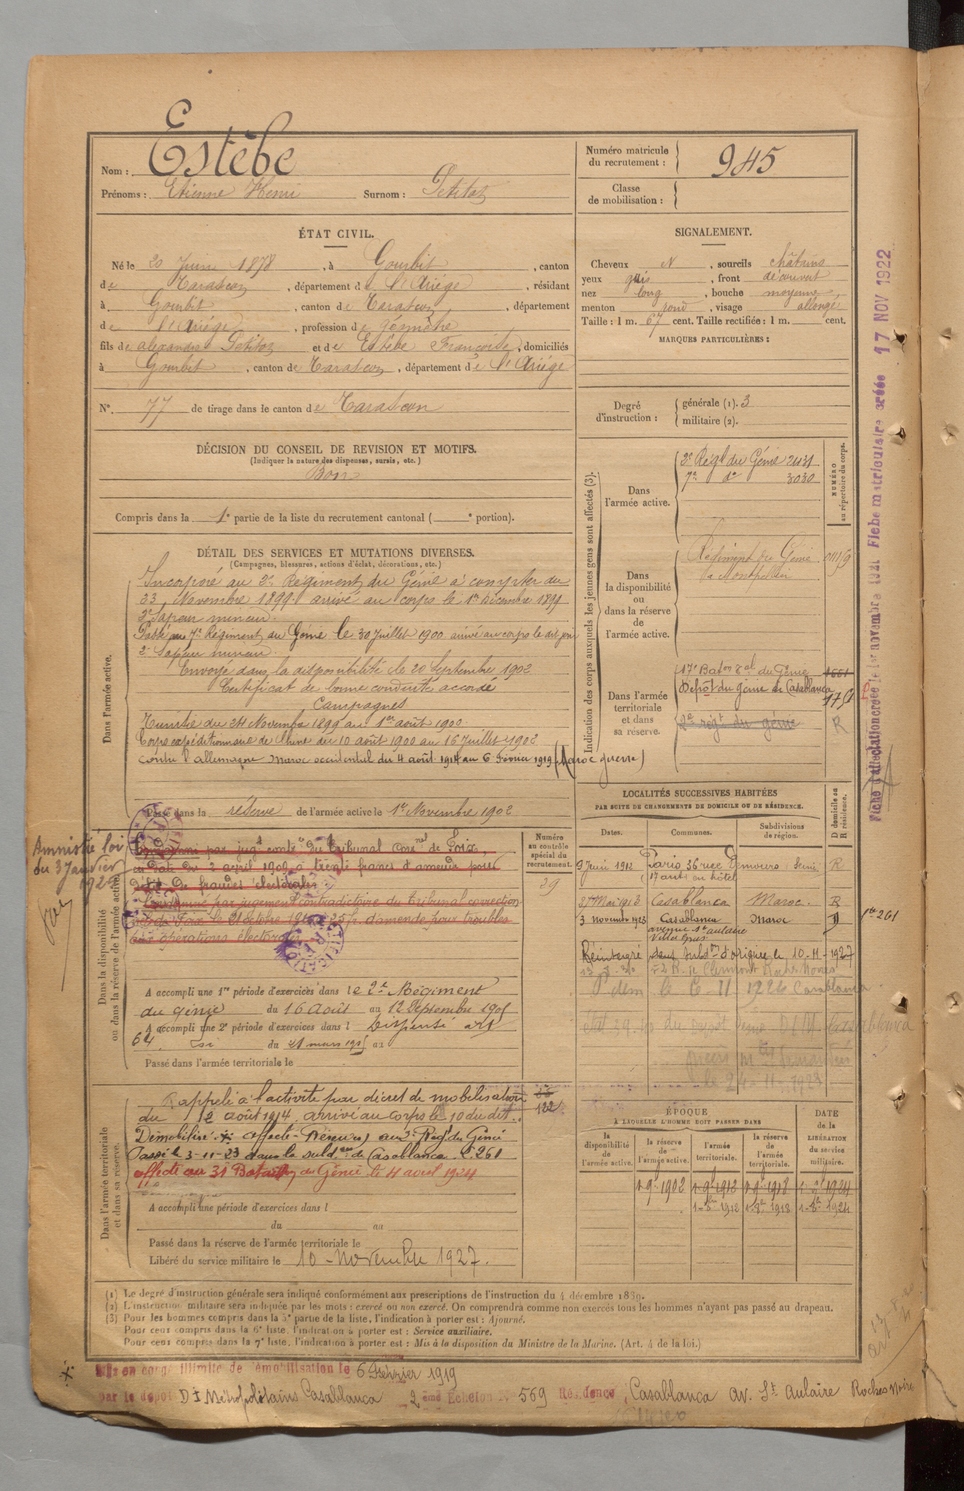 Nom : Estèbe
Prénoms : Etienne Henri Surnom : Petitoz
Numéro matricule du recrutement : 945
Classe de mobilisation :
ÉTAT CIVIL.
Né le 20 Juin 1878, à Gourbit, canton
de Tarascon, département de l'Ariège, résidant
à Gourbit, canton de Tarascon, département
de l'Ariège, profession de géomètre
fils de Alexandre Petitoz et de Estèbe Françoise, domiciliés
à Gourbit, canton de Tarascon, département de l'Ariège
N°. 77 de tirage dans le canton de Tarascon
SIGNALEMENT.
Cheveux N, sourcils châtains
yeux gris, front découvert
nez long, bouche moyenne
menton rond, visage allongé
Taille : 1 m. 67 cent. Taille rectifiée : 1 m. cent.
MARQUES PARTICULIÈRES :
Degré d'instruction : générale (1). 3
militaire (2).
DÉCISION DU CONSEIL DE REVISION ET MOTIFS.
(Indiquer la nature des dispenses, sursis, etc.)
Bon
Compris dans la 1e partie de la liste du recrutement cantonal ( e portion).
DÉTAIL DES SERVICES ET MUTATIONS DIVERSES.
(Campagnes, blessures, actions d'éclat, décorations, etc.)
Dans l'armée active.
Incorporé au 2e Régiment du Génie à compter du
23 Novembre 1899 arrivé au corps le 1er Décembre 1899
2e Sapeur mineur.
Passé au 7e Régiment du Génie le 30 Juillet 1900 arrivé au corps le dit jour
2e Sapeur mineur
Envoyé dans la disponibilité le 20 Septembre 1902
Certificat de bonne conduite accordé
Campagnes
Tunisie du 24 Novembre 1899 au 1er août 1900
Corps expéditionnaire de Chine du 10 août 1900 au 16 Juillet 1902
Contre l'allemagne Maroc occidental du 4 août 1914 au 6 Février 1919 (Maroc guerre)
Passé dans la réserve de l'armée active le 1er Novembre 1902
Indication des corps auxquels les jeunes gens sont affectés (3).
NUMÉRO au répertoire du corps.
Dans l'armée active.
2e Régt du Génie 2431
7e do 3030
Dans la disponibilité ou dans la réserve de l'armée active.
Régiment du Génie
de Montpellier
Dans l'armée territoriale et dans sa réserve.
17e Baton Tal du Génie
Dépôt du génie de Casablanca
2e régt du génie R
Fiche matriculaire créée 17 NOV 1922
LOCALITÉS SUCCESSIVES HABITÉES
PAR SUITE DE CHANGEMENTS DE DOMICILE OU DE RÉSIDENCE.
Dates. Communes. Subdivisions de région. D domicile ou R résidence.
9 Juin 1912 Paris 36 rue Seine R
17 ardt en hôtel
27 Mai 1913 Casablanca Maroc. R
3 Novembre 1923 Casablanca Maroc D
avenue St aulaire
Réintégré dans subdon d'origine le 10-11-1927
Amnistié loi
du 3 Janvier
1925
Dans la disponibilité ou dans la réserve de l'armée active.
Numéro au contrôle spécial du recrutement.
29
Condamné par jugt contre du tribunal corrnel de Foix,
en date du 2 avril 1909 à trente francs d'amende pour
délit de fraudes électorales
Condamné par jugement contradictoire du tribunal correction
de Foix le 21 Octobre 1910 à 25 fr d'amende pour troubles
aux opérations électorales
A accompli une 1re période d'exercices dans le 2e Régiment
du génie du 16 Août au 12 Septembre 1905
A accompli une 2e période d'exercices dans l Dispensé art
du 21 mars 1905 au
Passé dans l'armée territoriale le
Dans l'armée territoriale et dans sa réserve.
Rappelé à l'activité par décret de mobilisation
du 1 août 1914. arrivé au corps le 10 du dit.
122
Démobilisé affecté (Réserve) au 2e Régt du Génie
Passé le 3-11-23 dans la subdon de Casablanca L.261
affecté au 31 Bataillon du Génie le 4 avril 1924
A accompli une période d'exercices dans l
du au
Passé dans la réserve de l'armée territoriale le
Libéré du service militaire le 10 - Novembre 1927.
ÉPOQUE
À LAQUELLE L'HOMME DOIT PASSER DANS
la disponibilité de l'armée active. la réserve de l'armée active. l'armée territoriale. la réserve de l'armée territoriale. DATE de la LIBÉRATION du service militaire.
(1) Le degré d'instruction générale sera indiqué conformément aux prescriptions de l'instruction du 4 décembre 1889.
(2) L'instruction militaire sera indiquée par les mots : exercé ou non exercé. On comprendra comme non exercés tous les hommes n'ayant pas passé au drapeau.
(3) Pour les hommes compris dans la 5e partie de la liste, l'indication à porter est : Ajourné.
Pour ceux compris dans la 6e liste, l'indication à porter est : Service auxiliaire.
Pour ceux compris dans la 7e liste, l'indication à porter est : Mis à la disposition du Ministre de la Marine. (Art. 4 de la loi.)
Mis en congé illimité de démobilisation le 6 Février 1919
par le dépôt Dt Métropolitains Casablanca 2 ème Echelon N° 569 Résidence Casablanca av. St Aulaire Roches Noires